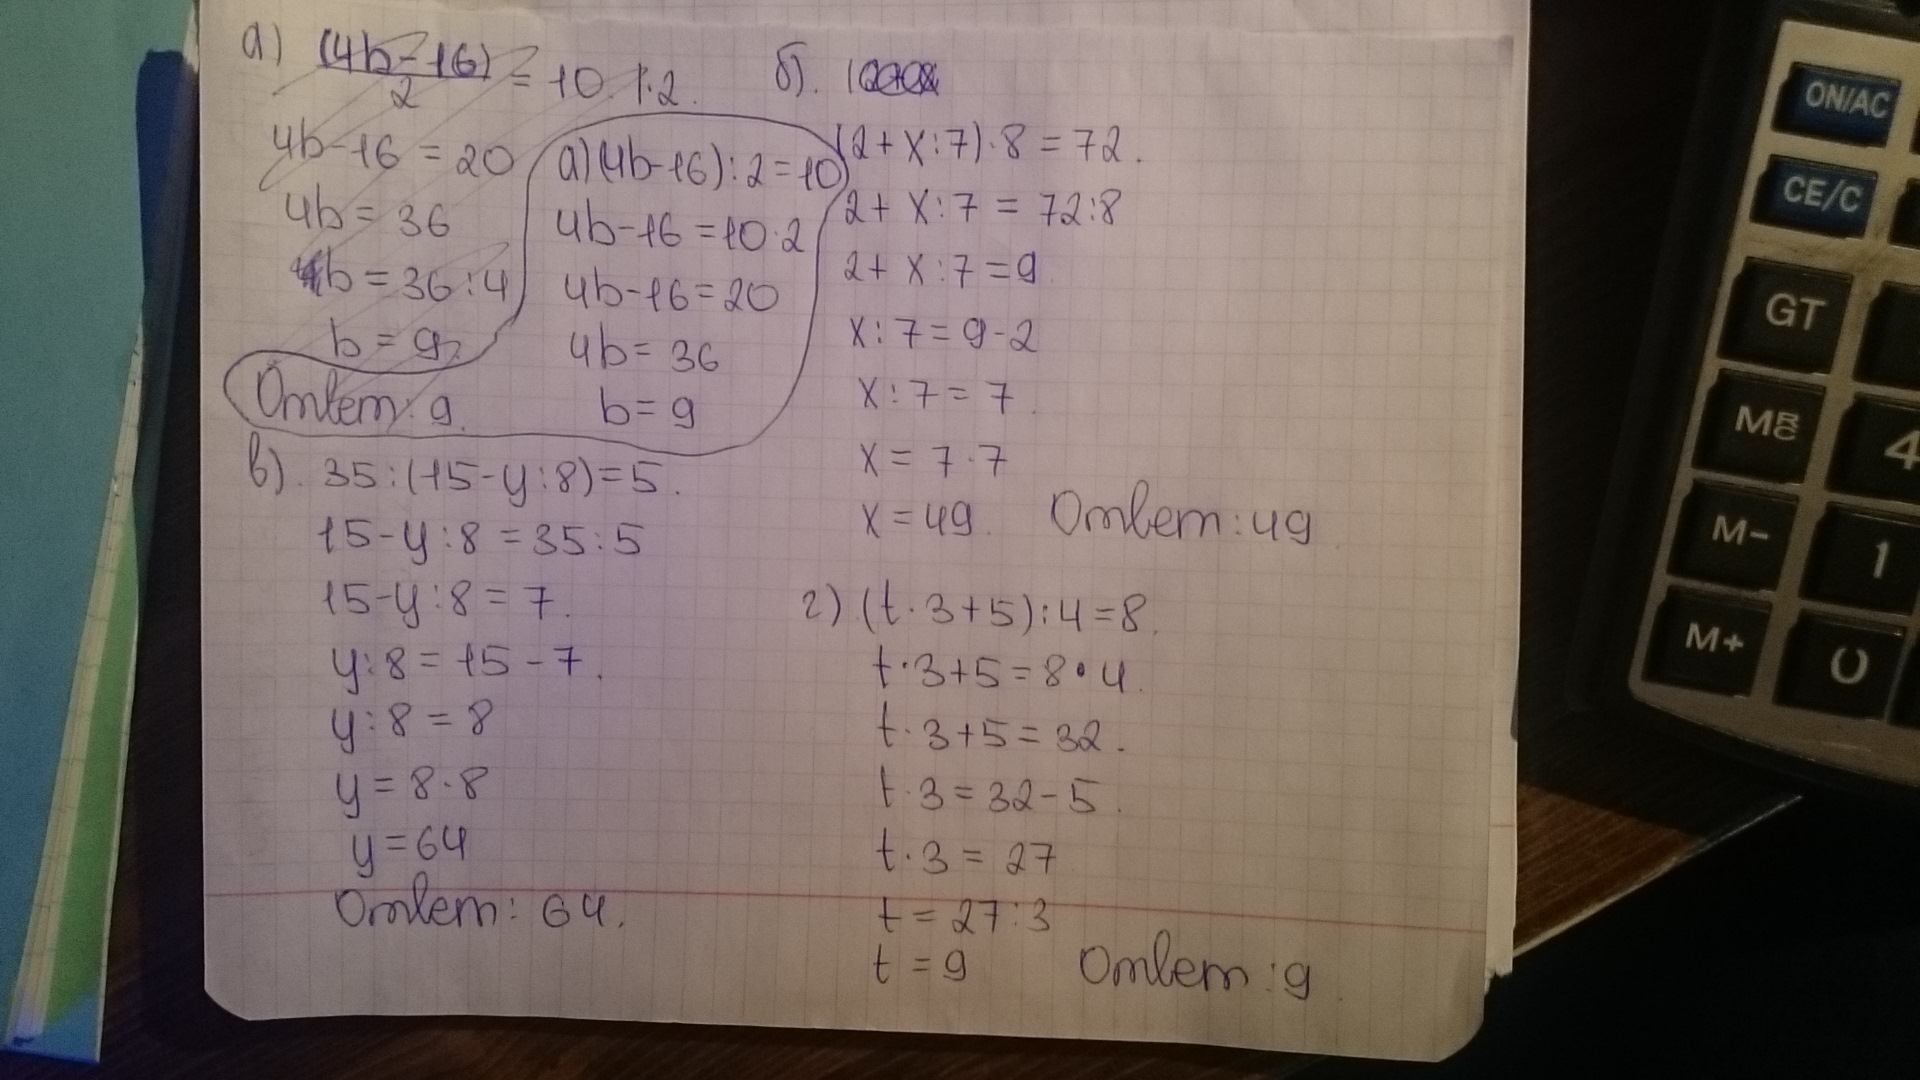 а) (4b-16)/2 = 10 |·2.
4b-16 = 20
4b = 36
b = 36:4
b = 9
Ответ: 9.
а) (4b-16):2=10
4b-16=10·2
4b-16=20
4b= 36
b= 9
б).
(2+x:7)·8=72.
2+ x:7 = 72:8
2+ x:7 =9
x:7=9-2
x:7= 7
x= 7·7
x=49. Ответ: 49
в). 35:(15-y:8)=5.
15-y:8=35:5
15-y:8= 7.
y:8=15-7.
y:8=8
y=8·8
y=64
Ответ: 64.
г) (t·3+5):4=8.
t·3+5=8·4.
t·3+5=32.
t·3=32-5.
t·3= 27
t= 27:3
t=9 Ответ: 9.
ON/AC
CE/C
GT
M-
M+
4
1
0